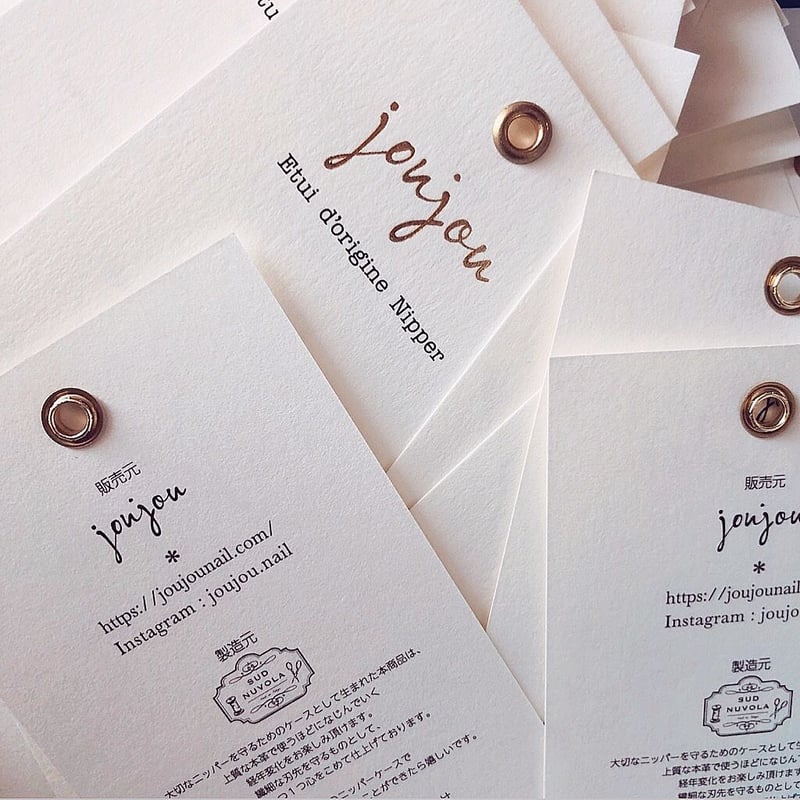 tu
joujou
Etui d'origine Nipper
販売元
joujou
*
https://joujounail.com/
Instagram : joujou.nail
製造元
SUD
NUVOLA
大切なニッパーを守るためのケースとして生まれた本商品は、
上質な本革で使うほどになじんでいく
経年変化をお楽しみ頂けます。
繊細な刃先を守るものとして、
つ1つ心をこめて仕上げております。
ニッパーケースで
ことができたら嬉しいです。
販売元
joujou
*
https://joujounail
Instagram : joujo
製造元
SUD
NUVOLA
大切なニッパーを守るためのケースとして
上質な本革で使うほど
経年変化をお楽し
繊細な刃先を守るもの